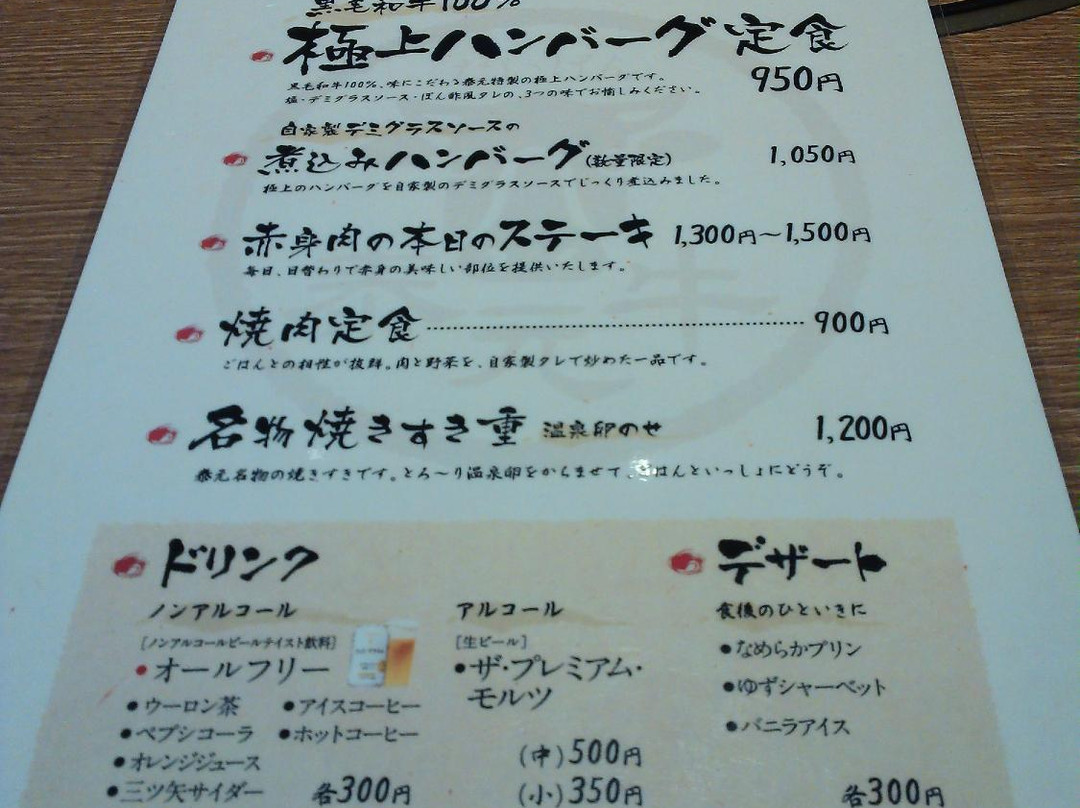 黒毛和牛100%
極上ハンバーグ定食
950円
黒毛和牛100%、味にこだわる泰元特製の極上ハンバーグです。
塩・デミグラスソース・ぽん酢風タレの、3つの味でお愉しみください。
自家製デミグラスソースの
煮込みハンバーグ(数量限定) 1,050円
極上のハンバーグを自家製のデミグラスソースでじっくり煮込みました。
赤身肉の本日のステーキ 1,300円～1,500円
毎日、日替わりで赤身の美味しい部位を提供いたします。
焼肉定食 900円
ごはんとの相性が抜群。肉と野菜を、自家製タレで炒めた一品です。
名物焼きすき重 温泉卵のせ 1,200円
泰元名物の焼きすきです。とろ～り温泉卵をからませて、ごはんといっしょにどうぞ。
ドリンク
ノンアルコール
[ノンアルコールビールテイスト飲料]
•オールフリー
•ウーロン茶 •アイスコーヒー
•ペプシコーラ •ホットコーヒー
•オレンジジュース
•三ツ矢サイダー 各300円
アルコール
[生ビール]
•ザ・プレミアム・
モルツ
(中)500円
(小)350円
デザート
食後のひといきに
•なめらかプリン
•ゆずシャーベット
•バニラアイス
各300円